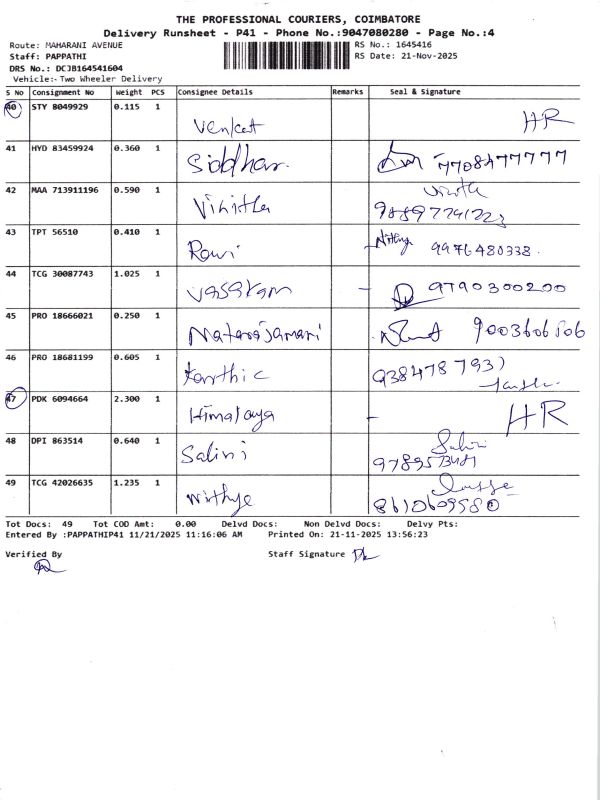 THE PROFESSIONAL COURIERS, COIMBATORE
Delivery Runsheet - P41 - Phone No.:9047080280 - Page No.:4
Route: MAHARANI AVENUE RS No.: 1645416
Staff: PAPPATHI RS Date: 21-Nov-2025
DRS No.: DCJB164541604
Vehicle:- Two Wheeler Delivery
S No Consignment No Weight PCS Consignee Details Remarks Seal & Signature
40 STY 8049929 0.115 1 Venkat HR
41 HYD 83459924 0.360 1 Siddhar. 7708477777
42 MAA 713911196 0.590 1 Vinitha
43 TPT 56510 0.410 1 Ravi 9976480338.
44 TCG 30087743 1.025 1 9790300200
45 PRO 18666021 0.250 1 Natarajamani 9003606506
46 PRO 18681199 0.605 1 Karthic
47 PDK 6094664 2.300 1 Himalaya HR
48 DPI 863514 0.640 1 Salini Salini
49 TCG 42026635 1.235 1 Nithye 8610609580
Tot Docs: 49 Tot COD Amt: 0.00 Delvd Docs: Non Delvd Docs: Delvy Pts:
Entered By :PAPPATHIP41 11/21/2025 11:16:06 AM Printed On: 21-11-2025 13:56:23
Verified By Staff Signature